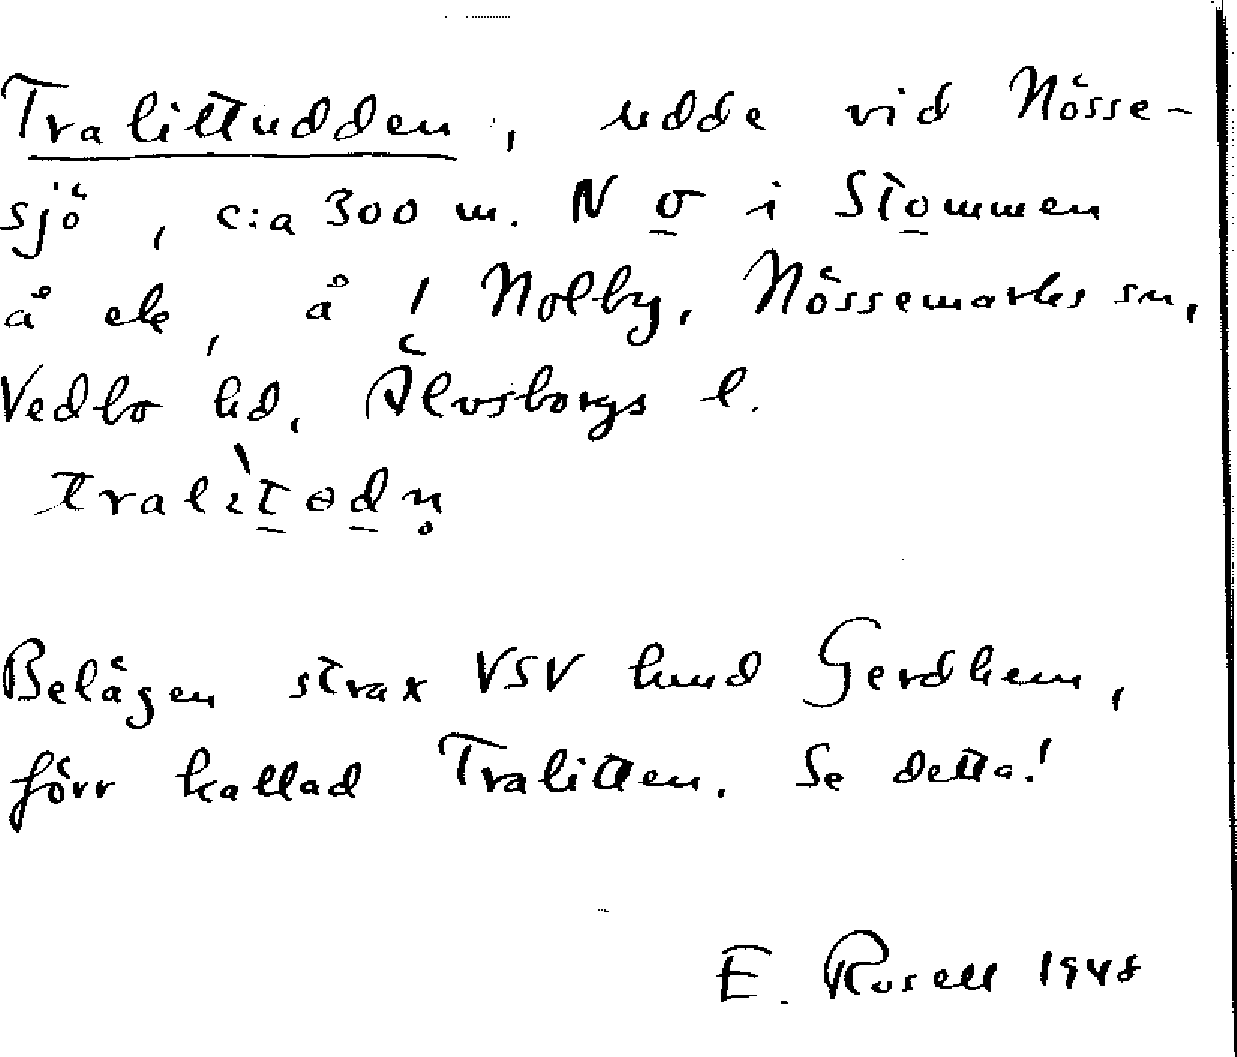 Tralittudden, udde vid Nösse-
sjö, c:a 300 m. N o i Stommen
å ek, å / Nolby, Nössemarks sn,
Vedbo hd, Älvsborgs l.
tralìtedn̥
Belägen strax VSV hund Gerdhem,
förr kallad Tralitten. Se detta!
E. Rosell 1948